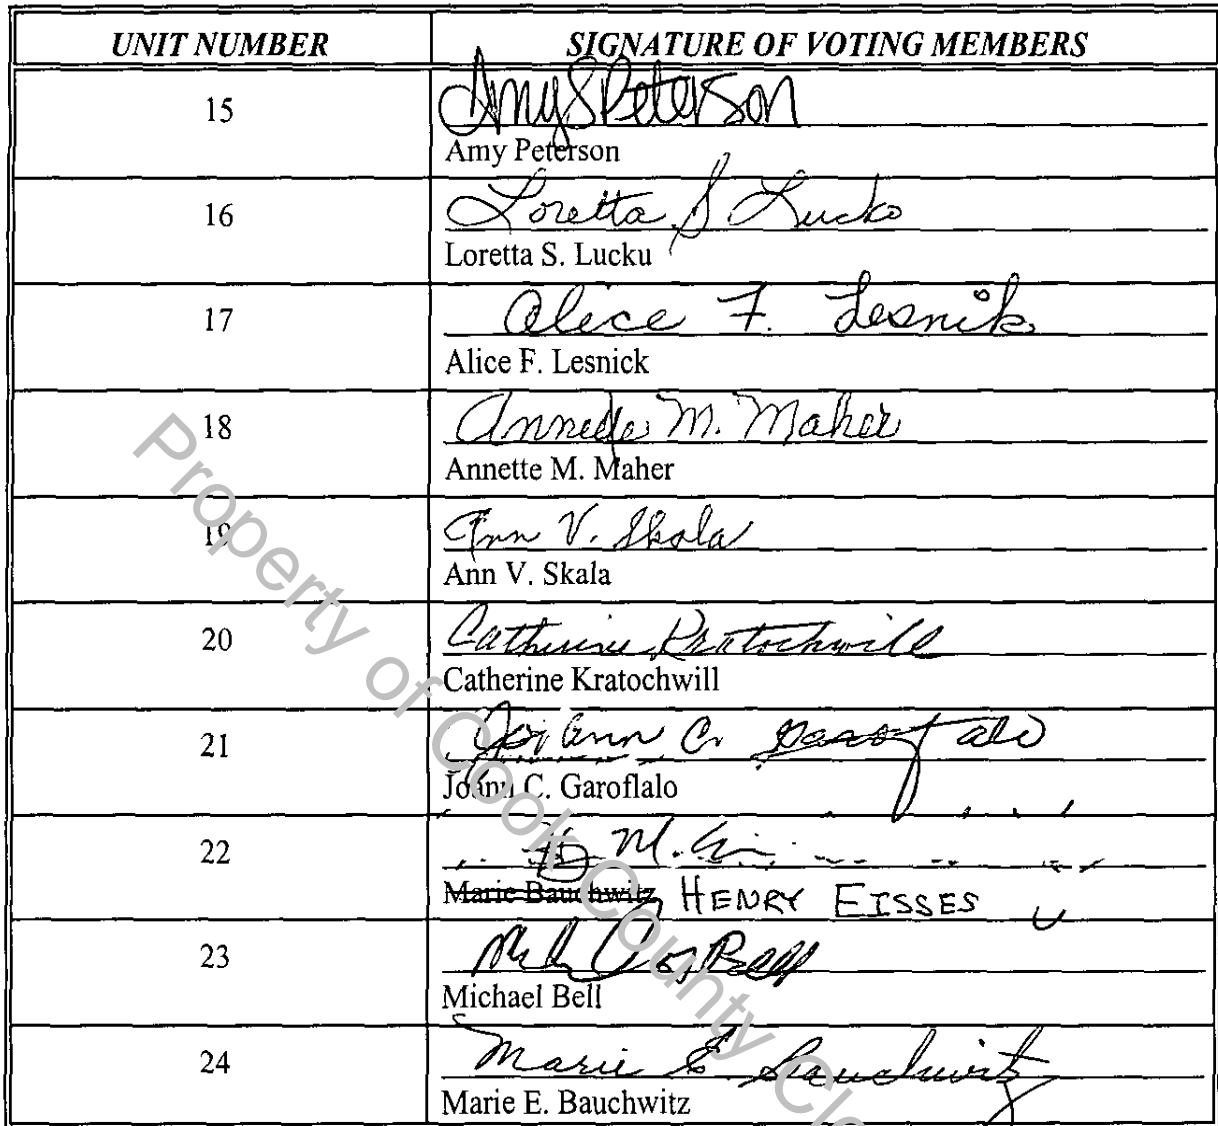 UNIT NUMBER SIGNATURE OF VOTING MEMBERS
15 Amy S Peterson
Amy Peterson
16 Loretta S. Lucko
Loretta S. Lucku
17 Alice F. Lesnik
Alice F. Lesnick
18 Annette M. Maher
Annette M. Maher
19 Ann V. Skala
Ann V. Skala
20 Catherine Kratochwill
Catherine Kratochwill
21 JoAnn C. Garofalo
Joann C. Garoflalo
22 M.
Marie Bauchwitz HENRY EISSES
23 Bell
Michael Bell
24 Marie E. Bauchwitz
Marie E. Bauchwitz
Property of Cook County